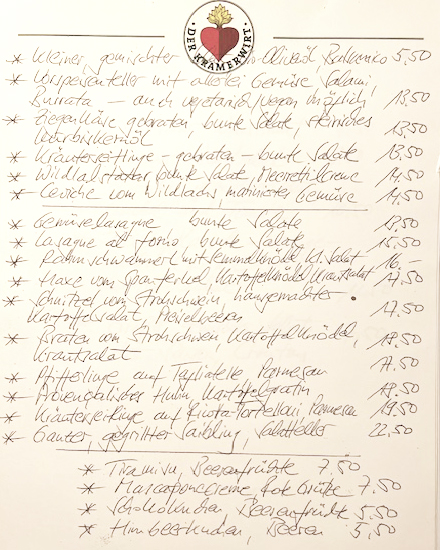 DER KRAMERWIRT
* Kleiner gemischter Olivenöl, Balsamico 5,50
* Vorspeisenteller mit allerlei Gemüse, Salami,
Burrata – auch vegetarisch, vegan möglich 13,50
* Ziegenkäse gebraten, bunte Salate, steirisches
Kürbiskernöl 13,50
* Kräuterseitlinge – gebraten – bunte Salate 13,50
* bunte Salate, Meerrettichcreme 14,50
* Ceviche vom Wildlachs, mariniertes Gemüse 14,50
* Gemüselasagne bunte Salate 13,50
* Lasagne al forno bunte Salate 15,50
* Rahmschwammerl mit Semmelknödel, kl. Salat 16.-
* Haxe vom Spanferkel, Kartoffelknödel, Krautsalat 17,50
* Schnitzel vom Strohschwein, hausgemachter
Kartoffelsalat, Preiselbeeren 17.50
* Braten vom Strohschwein, Kartoffelknödel, 18.50
Krautsalat
* Pfifferlinge auf Tagliatelle, Parmesan 17.50
* Provenzalisches Huhn, Kartoffelgratin 18.50
* Kräuterseitlinge auf Ricotta-Tortelloni, Parmesan 19.50
* Ganzer, gegrillter Saibling, Salatteller 22,50
* Tiramisu, Beerenfrüchte 7.50
* Mascarponecreme, Rote Grütze 7.50
* Schokokuchen, Beerenfrüchte 5.50
* Himbeerkuchen, Beeren 5,50